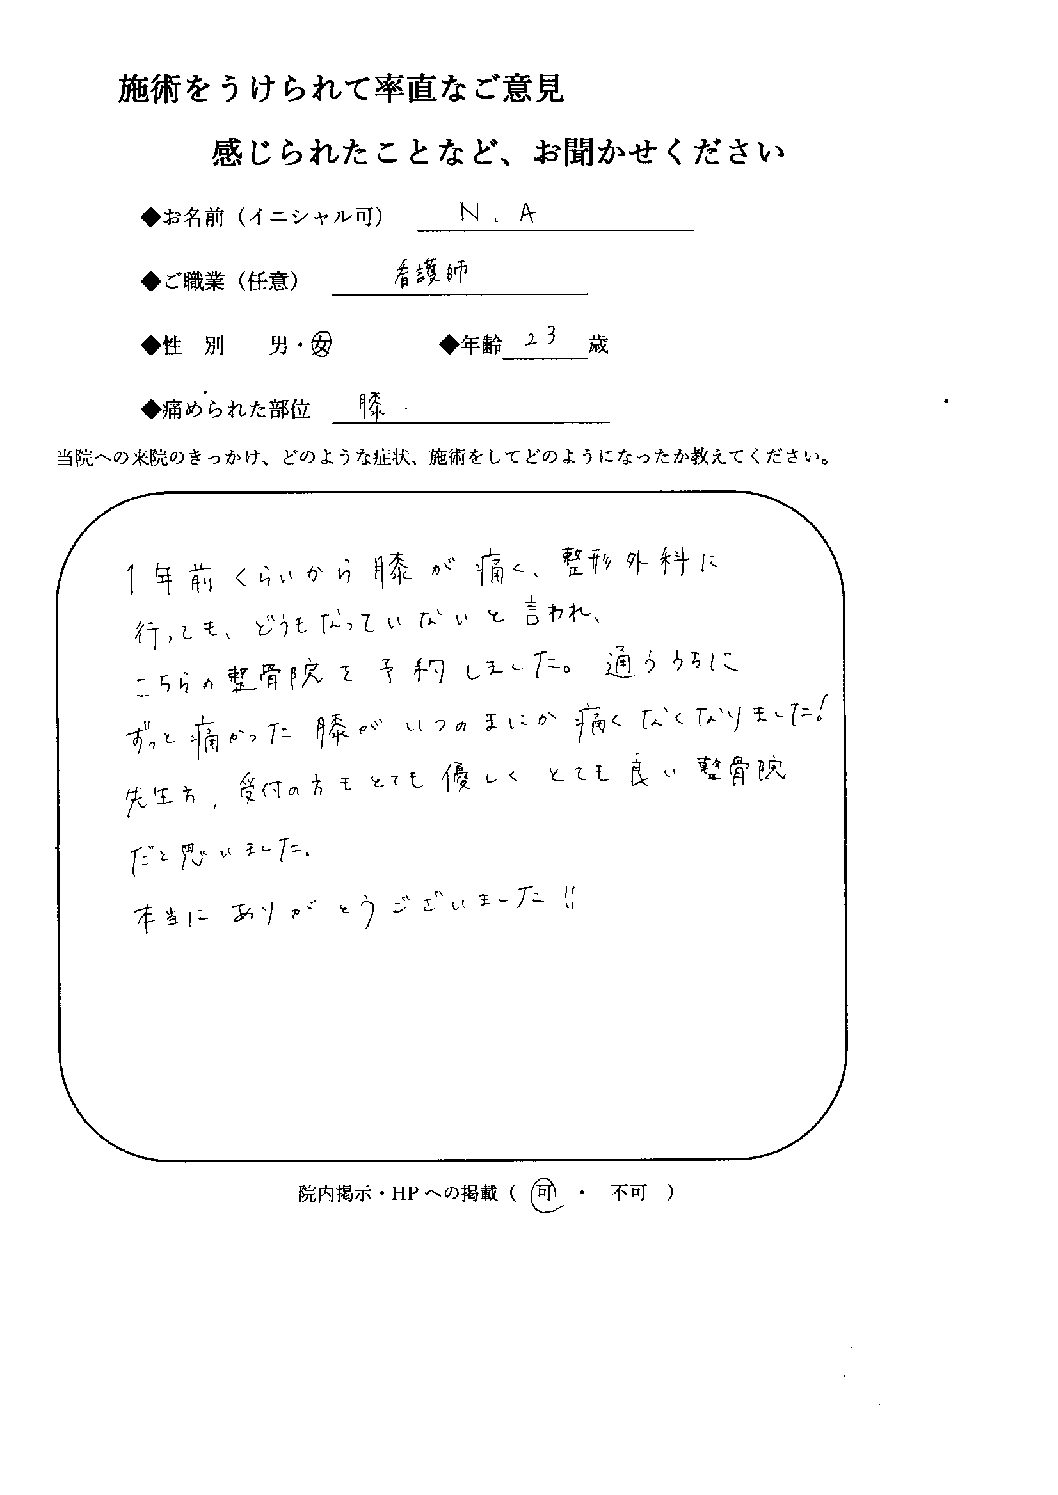 施術をうけられて率直なご意見
感じられたことなど、お聞かせください
◆お名前（イニシャル可） N.A
◆ご職業（任意） 看護師
◆性 別 男・女 ◆年齢 23 歳
◆痛められた部位 膝
当院への来院のきっかけ、どのような症状、施術をしてどのようになったか教えてください。
1年前くらいから膝が痛く、整形外科に
行っても、どうもなっていないと言われ、
こちらの整骨院を予約しました。通ううちに
ずっと痛かった膝がいつのまにか痛くなくなりました!
先生方、受付の方もとても優しくとても良い整骨院
だと思いました。
本当にありがとうございました!!
院内掲示・HPへの掲載（ 可 ・ 不可 ）